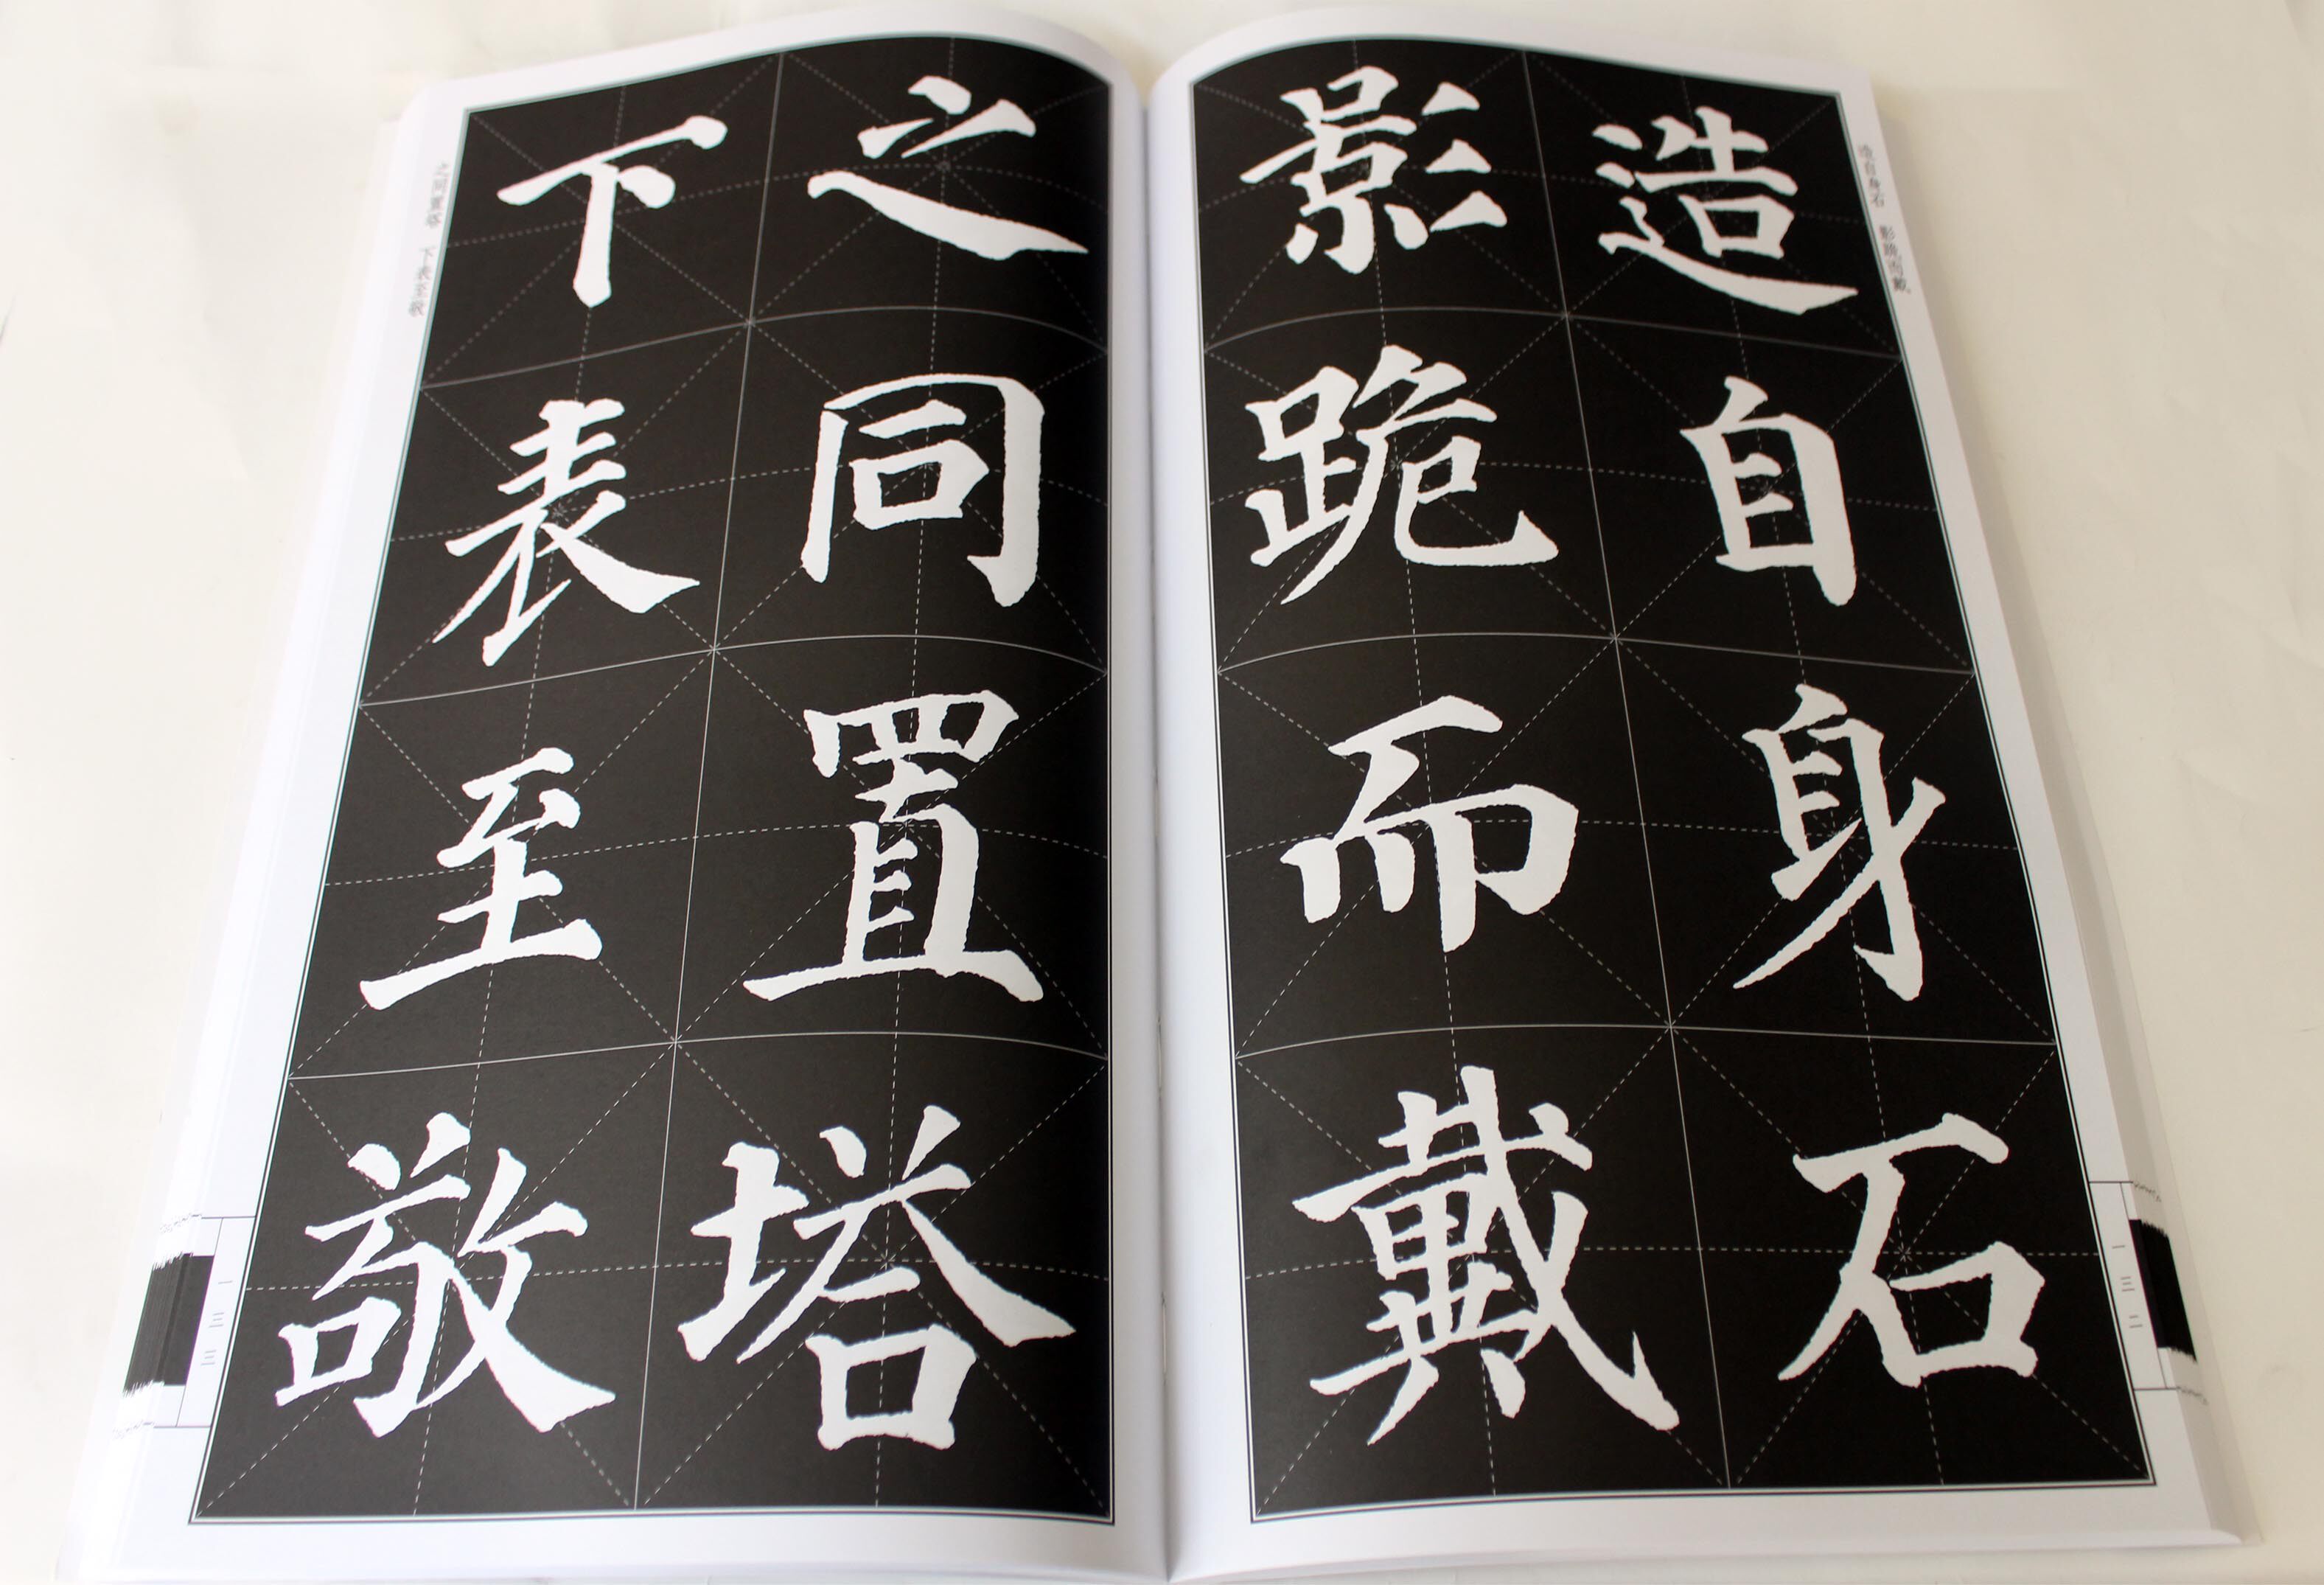 造自身石
影跪而戴
之同置塔
下表至敬
造自身石 影跪而戴
之同置塔 下表至敬
一三二
一三三